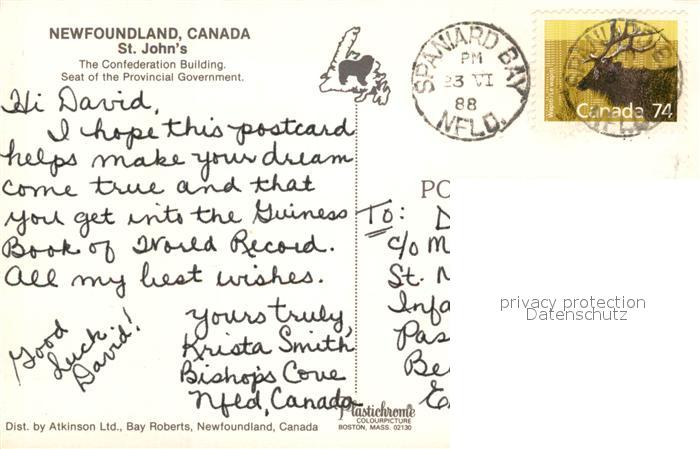 NEWFOUNDLAND, CANADA
St. John's
The Confederation Building.
Seat of the Provincial Government.
Hi David,
I hope this postcard
helps make your dream
come true and that
you get into the Guiness
Book of World Record.
All my best wishes.
Good
Luck
David!
Yours truly,
Krista Smith
Bishops Cove
Nfld, Canada
Dist. by Atkinson Ltd., Bay Roberts, Newfoundland, Canada
Plastichrome
COLOURPICTURE
BOSTON, MASS. 02130
SPANIARD BAY
PM
23 VI
88
NFLD.
Wapiti/Le wapiti
Canada 74
PO
To: D
c/o M
St. M
Infa
Pas
Be
E
privacy protection
Datenschutz